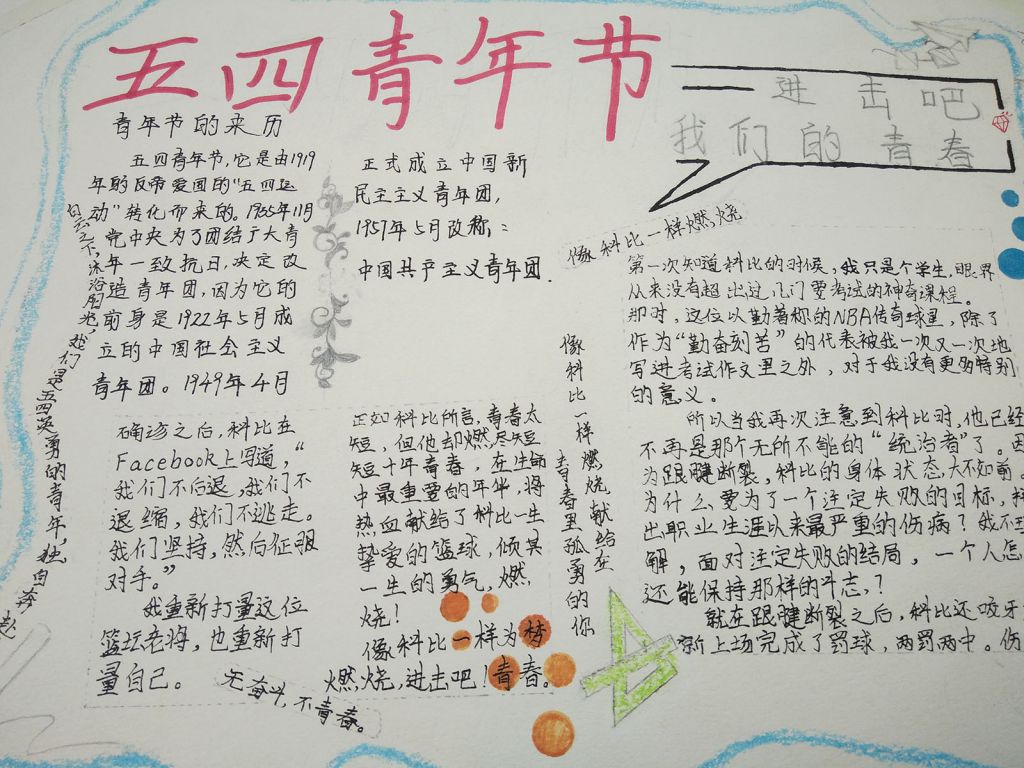 五四青年节
进击吧
我们的青春
青年节的来历
五四青年节,它是由1919
年的反帝爱国的“五四运
动”转化而来的。1935年11月
党中央为了团结广大青
年一致抗日,决定改
造青年团,因为它的
前身是1922年5月成
立的中国社会主义
青年团。1949年4月
正式成立中国新
民主主义青年团,
1957年5月改称,:
中国共产主义青年团.
白云之下,沐浴阳光,我们是五四英勇的青年,独自奔赴
像科比一样燃烧
第一次知道科比的时候,我只是个学生,眼界
从来没有超出过几门要考试的神奇课程。
那时,这位以勤著称的NBA传奇球星,除了
作为“勤奋刻苦”的代表被我一次又一次地
写进考试作文里之外,对于我没有更多特别
的意义。
所以当我再次注意到科比时,他已经
不再是那个无所不能的“统治者”了。因
为跟腱断裂,科比的身体状态大不如前。
为什么要为了一个注定失败的目标,拼
出职业生涯以来最严重的伤病?我不
解,面对注定失败的结局,一个人怎
还能保持那样的斗志,?
就在跟腱断裂之后,科比还咬牙
新上场完成了罚球,两罚两中。伤
确诊之后,科比在
Facebook上写道,“
我们不后退,我们不
退缩,我们不逃走。
我们坚持,然后征服
对手。”
我重新打量这位
篮坛老将,也重新打
量自己。
正如科比所言,青春太
短,但他却燃尽短
短十年青春,在生命
中最重要的年华,将
热血献给了科比一生
挚爱的篮球,倾其
一生的勇气,燃
烧!
像科比一样为梦
燃,烧,进击吧!青春。
像科比一样燃烧献给在
青春里孤勇的你
无奋斗,不青春。